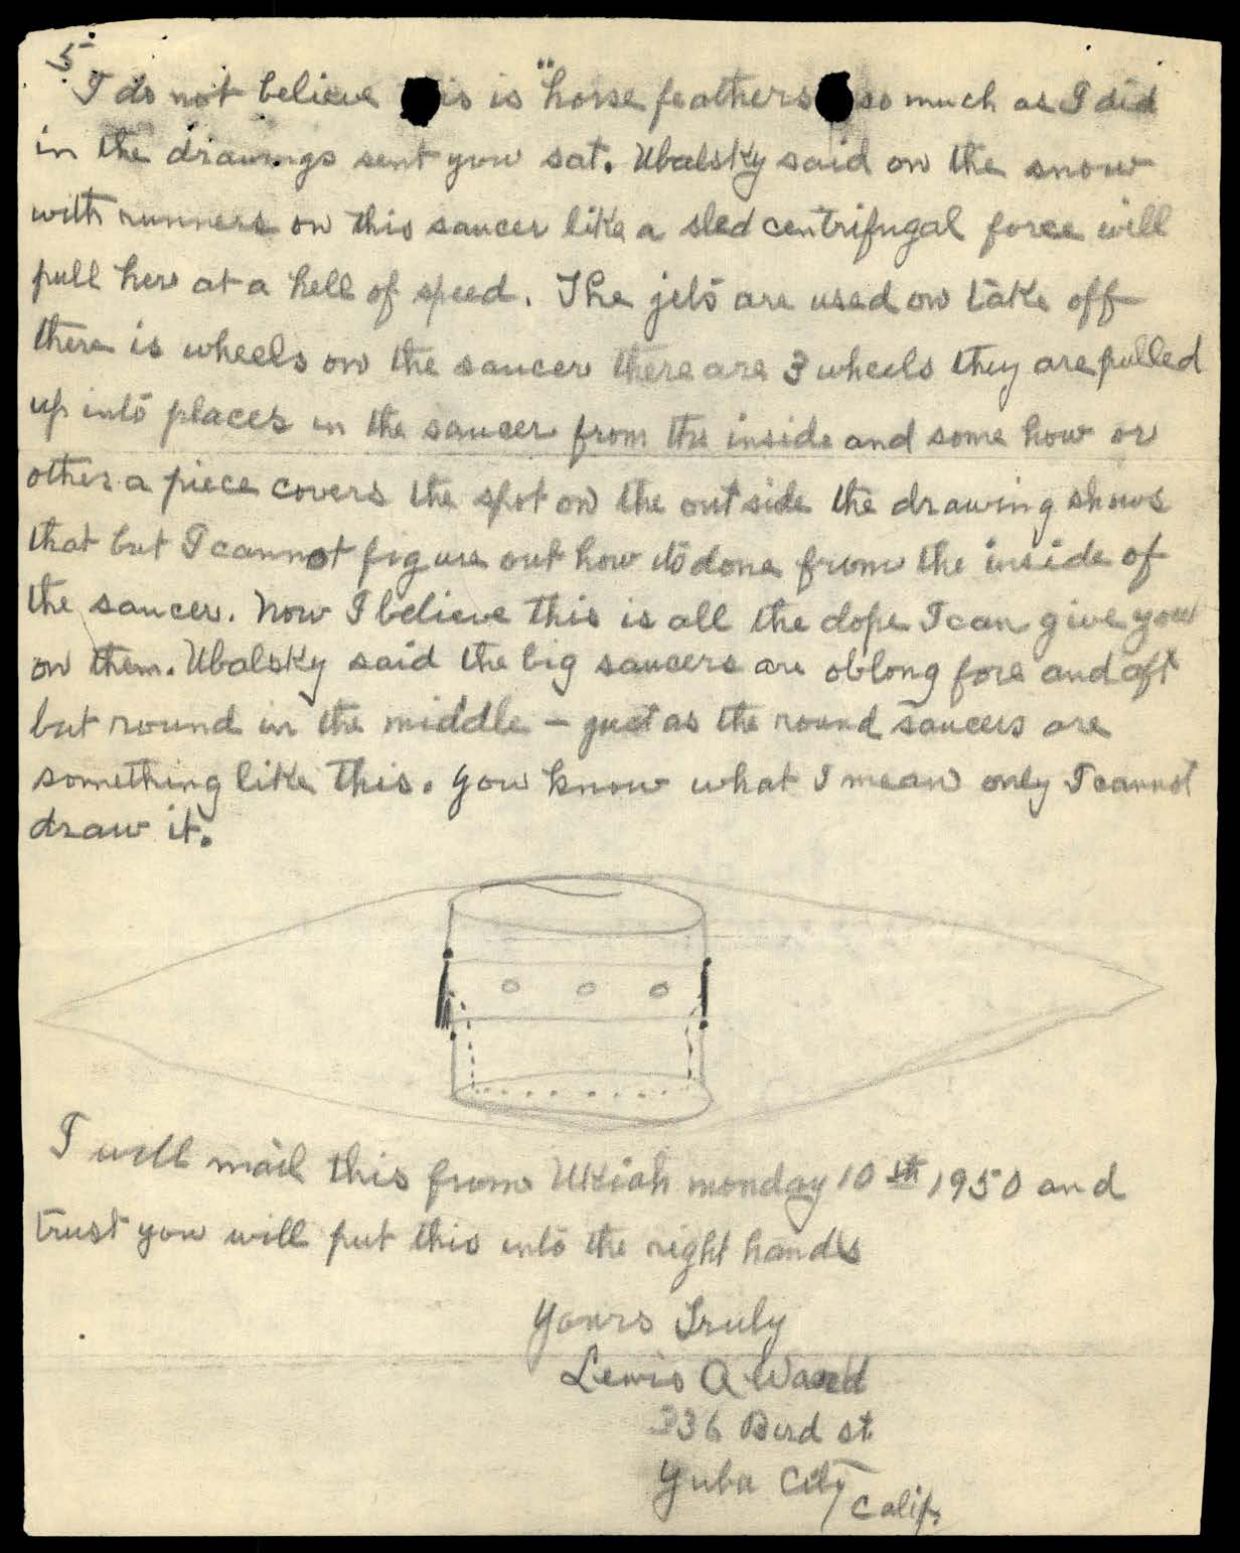 5
I do not believe is is "horse feathers so much as I did
in the drawings sent you sat. Ubalsky said on the snow
with runners on this saucer like a sled centrifugal force will
pull her at a hell of speed. The jets are used on take off
there is wheels on the saucer there are 3 wheels they are pulled
up into places in the saucer from the inside and some how or
other a piece covers the spot on the outside the drawing shows
that but I cannot figure out how its done from the inside of
the saucer. Now I believe this is all the dope I can give you
on them. Ubalsky said the big saucers are oblong fore and aft
but round in the middle — just as the round saucers are
something like this. You know what I mean only I cannot
draw it.
I will mail this from Ukiah monday 10th 1950 and
trust you will put this into the right hands
Yours Truly
Lewis A Ward
336 Bird st
Yuba City Calif.